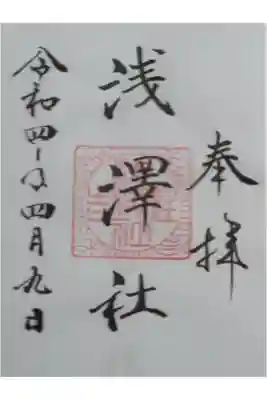 奉拝
浅澤社
令和四年四月九日